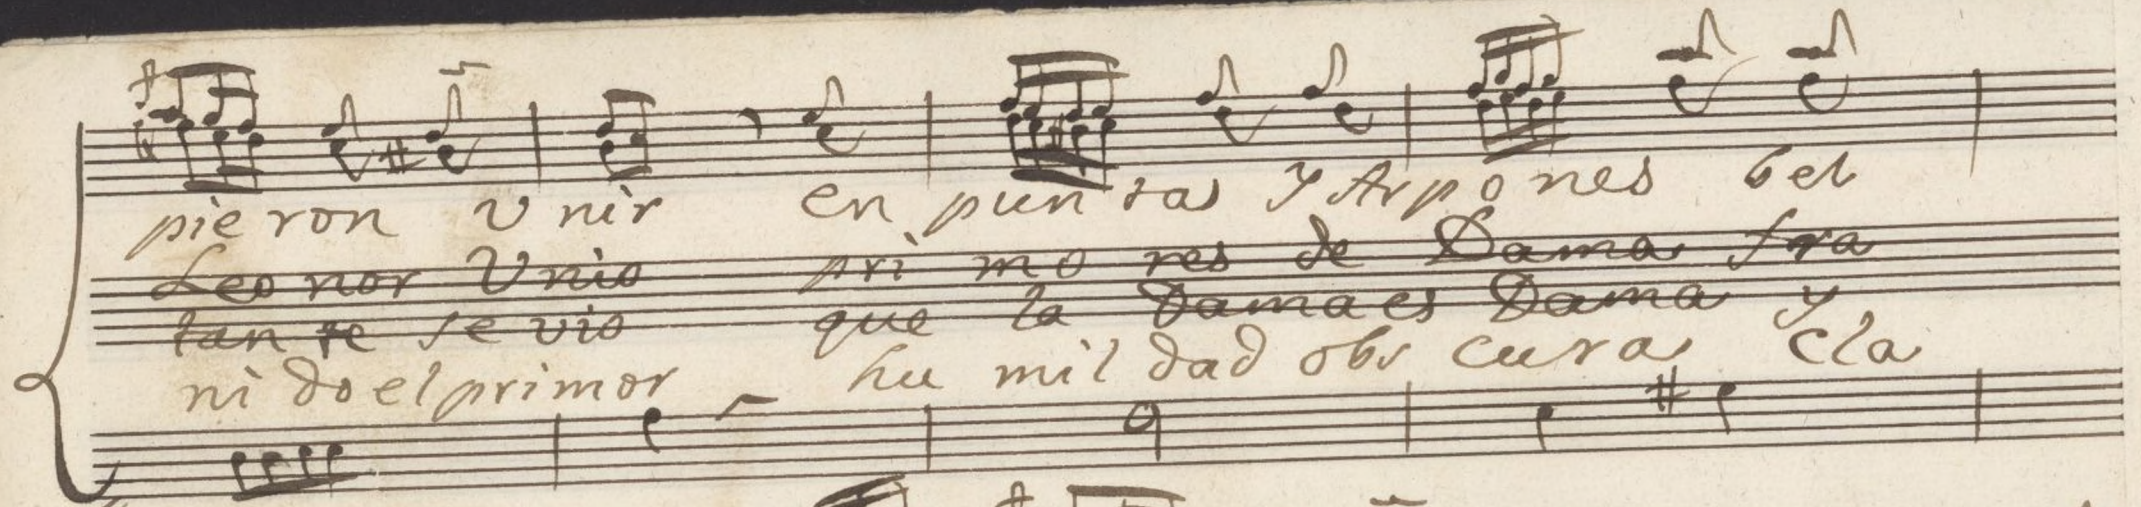 pie ron V nir en pun tas Y Arpo nes bel
Leo nor Vnio pri mo res de Dama fra
tan te se vio que la Dama es Dama y
ni do el primor hu mil dad obs cura cla